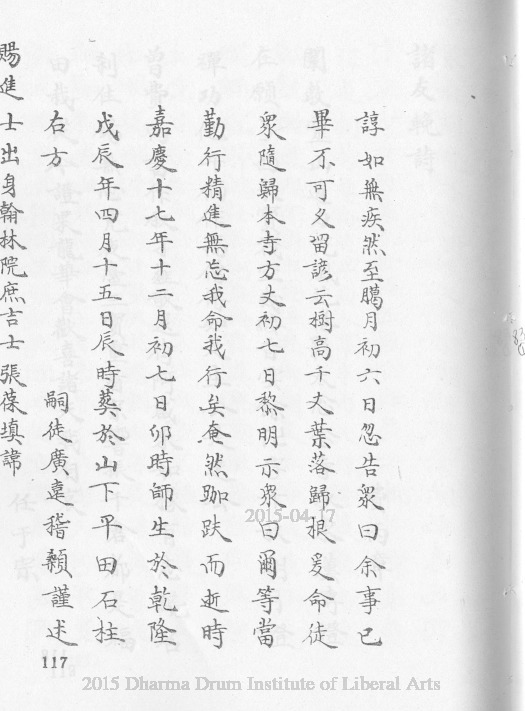 諄如無疾然至臈月初六日忽告衆曰余事已
畢不可久留諺云樹高千丈葉落歸根爰命徒
衆隨歸本寺方丈初七日黎明示衆曰爾等當
勤行精進無忘我命我行矣奄然跏趺而逝時
嘉慶十七年十二月初七日卯時師生於乾隆
戊辰年四月十五日辰時葬於山下平田石柱
右方 嗣徒廣遠稽顙謹述
賜進士出身翰林院庶吉士張葆填諱
117
2015-04-17
2015 Dharma Drum Institute of Liberal Arts